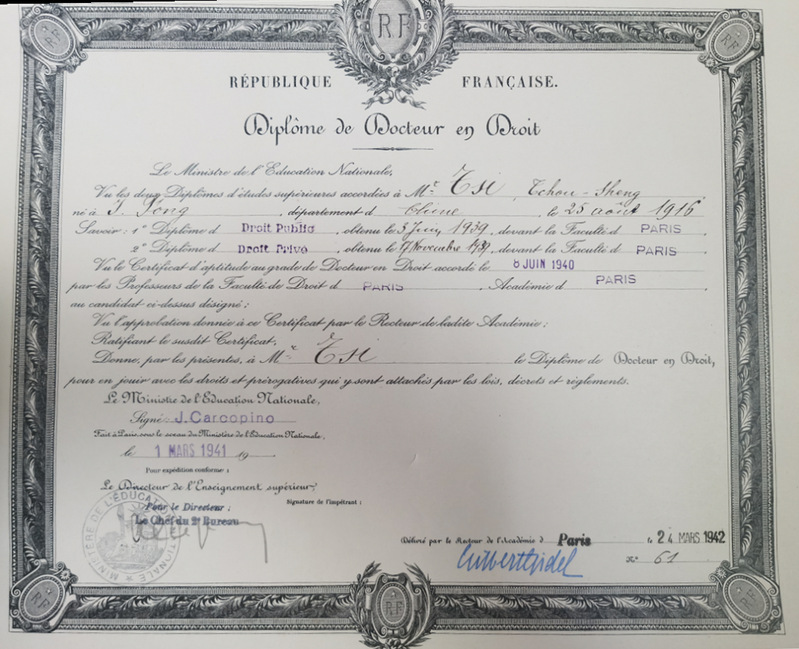 RF
RF
RF
RÉPUBLIQUE FRANÇAISE.
Diplôme de Docteur en Droit
Le Ministre de l'Education Nationale,
Vu les deux Diplômes d'études supérieures accordées à Mr Tsi, Tchou-Sheng
né à I. Tong, département d Chine, le 25 août 1916
Savoir: 1º Diplôme d Droit Public, obtenu le 3 Juin 1939, devant la Faculté d PARIS
2º Diplôme d Droit Privé, obtenu le Novembre 1939, devant la Faculté d PARIS
Vu le Certificat d'aptitude au grade de Docteur en Droit accordé le 8 JUIN 1940
par les Professeurs de la Faculté de Droit d PARIS, Académie d PARIS
au candidat ci-dessus désigné;
Vu l'approbation donnée à ce Certificat par le Recteur de ladite Académie;
Ratifiant le susdit Certificat,
Donne, par les présentes, à Mr Tsi le Diplôme de Docteur en Droit,
pour en jouir avec les droits et prérogatives qui y sont attachés par les lois, décrets et règlements.
Le Ministre de l'Education Nationale,
Signé: J. Carcopino
Fait à Paris, sous le sceau du Ministère de l'Education Nationale,
le 1 MARS 1941 19
Pour expédition conforme:
Le Directeur de l'Enseignement supérieur;
Signature de l'impétrant:
Pour le Directeur;
Le Chef du 2e Bureau
MINISTÈRE DE L'ÉDUCATION NATIONALE
Délivré par le Recteur de l'Académie d Paris le 24 MARS 1942
Gilbert Gidel
Nº 61
RF
RF
RF